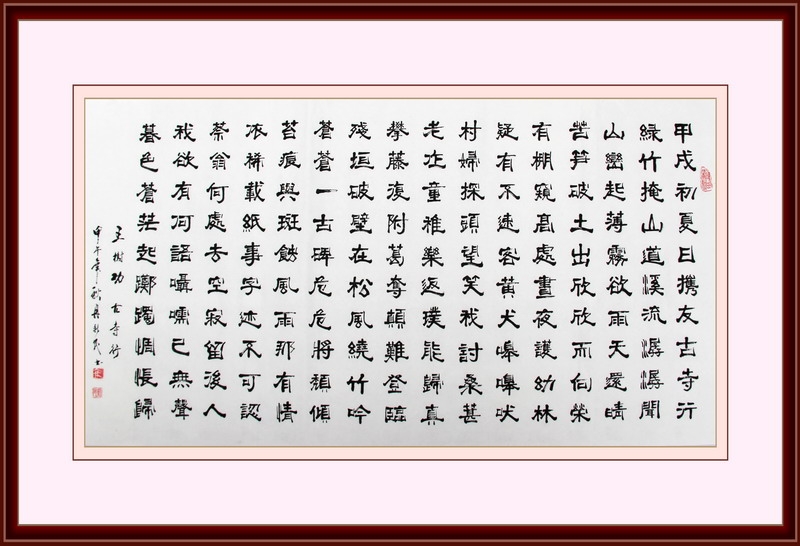 甲戌初夏日攜友古寺行
綠竹掩山道溪流潺潺聞
山巒起薄霧欲雨天還晴
苦笋破土出欣欣而向榮
有棚窺高處晝夜護幼林
疑有不速客黄犬嗥嗥吠
村婦探頭望笑我討桑葚
老在童稚樂返璞能歸真
攀藤復附葛奪顛難登臨
殘垣破壁在松風繞竹吟
蒼蒼一古碑危危將頹傾
苔痕與斑蝕風雨那有情
依稀載紙事字迹不可認
茶翁何處去空寂留後人
我欲有何語囁嚅已無聲
暮色蒼茫起躑躅惆悵歸
王樹功 古寺行
甲午年秋